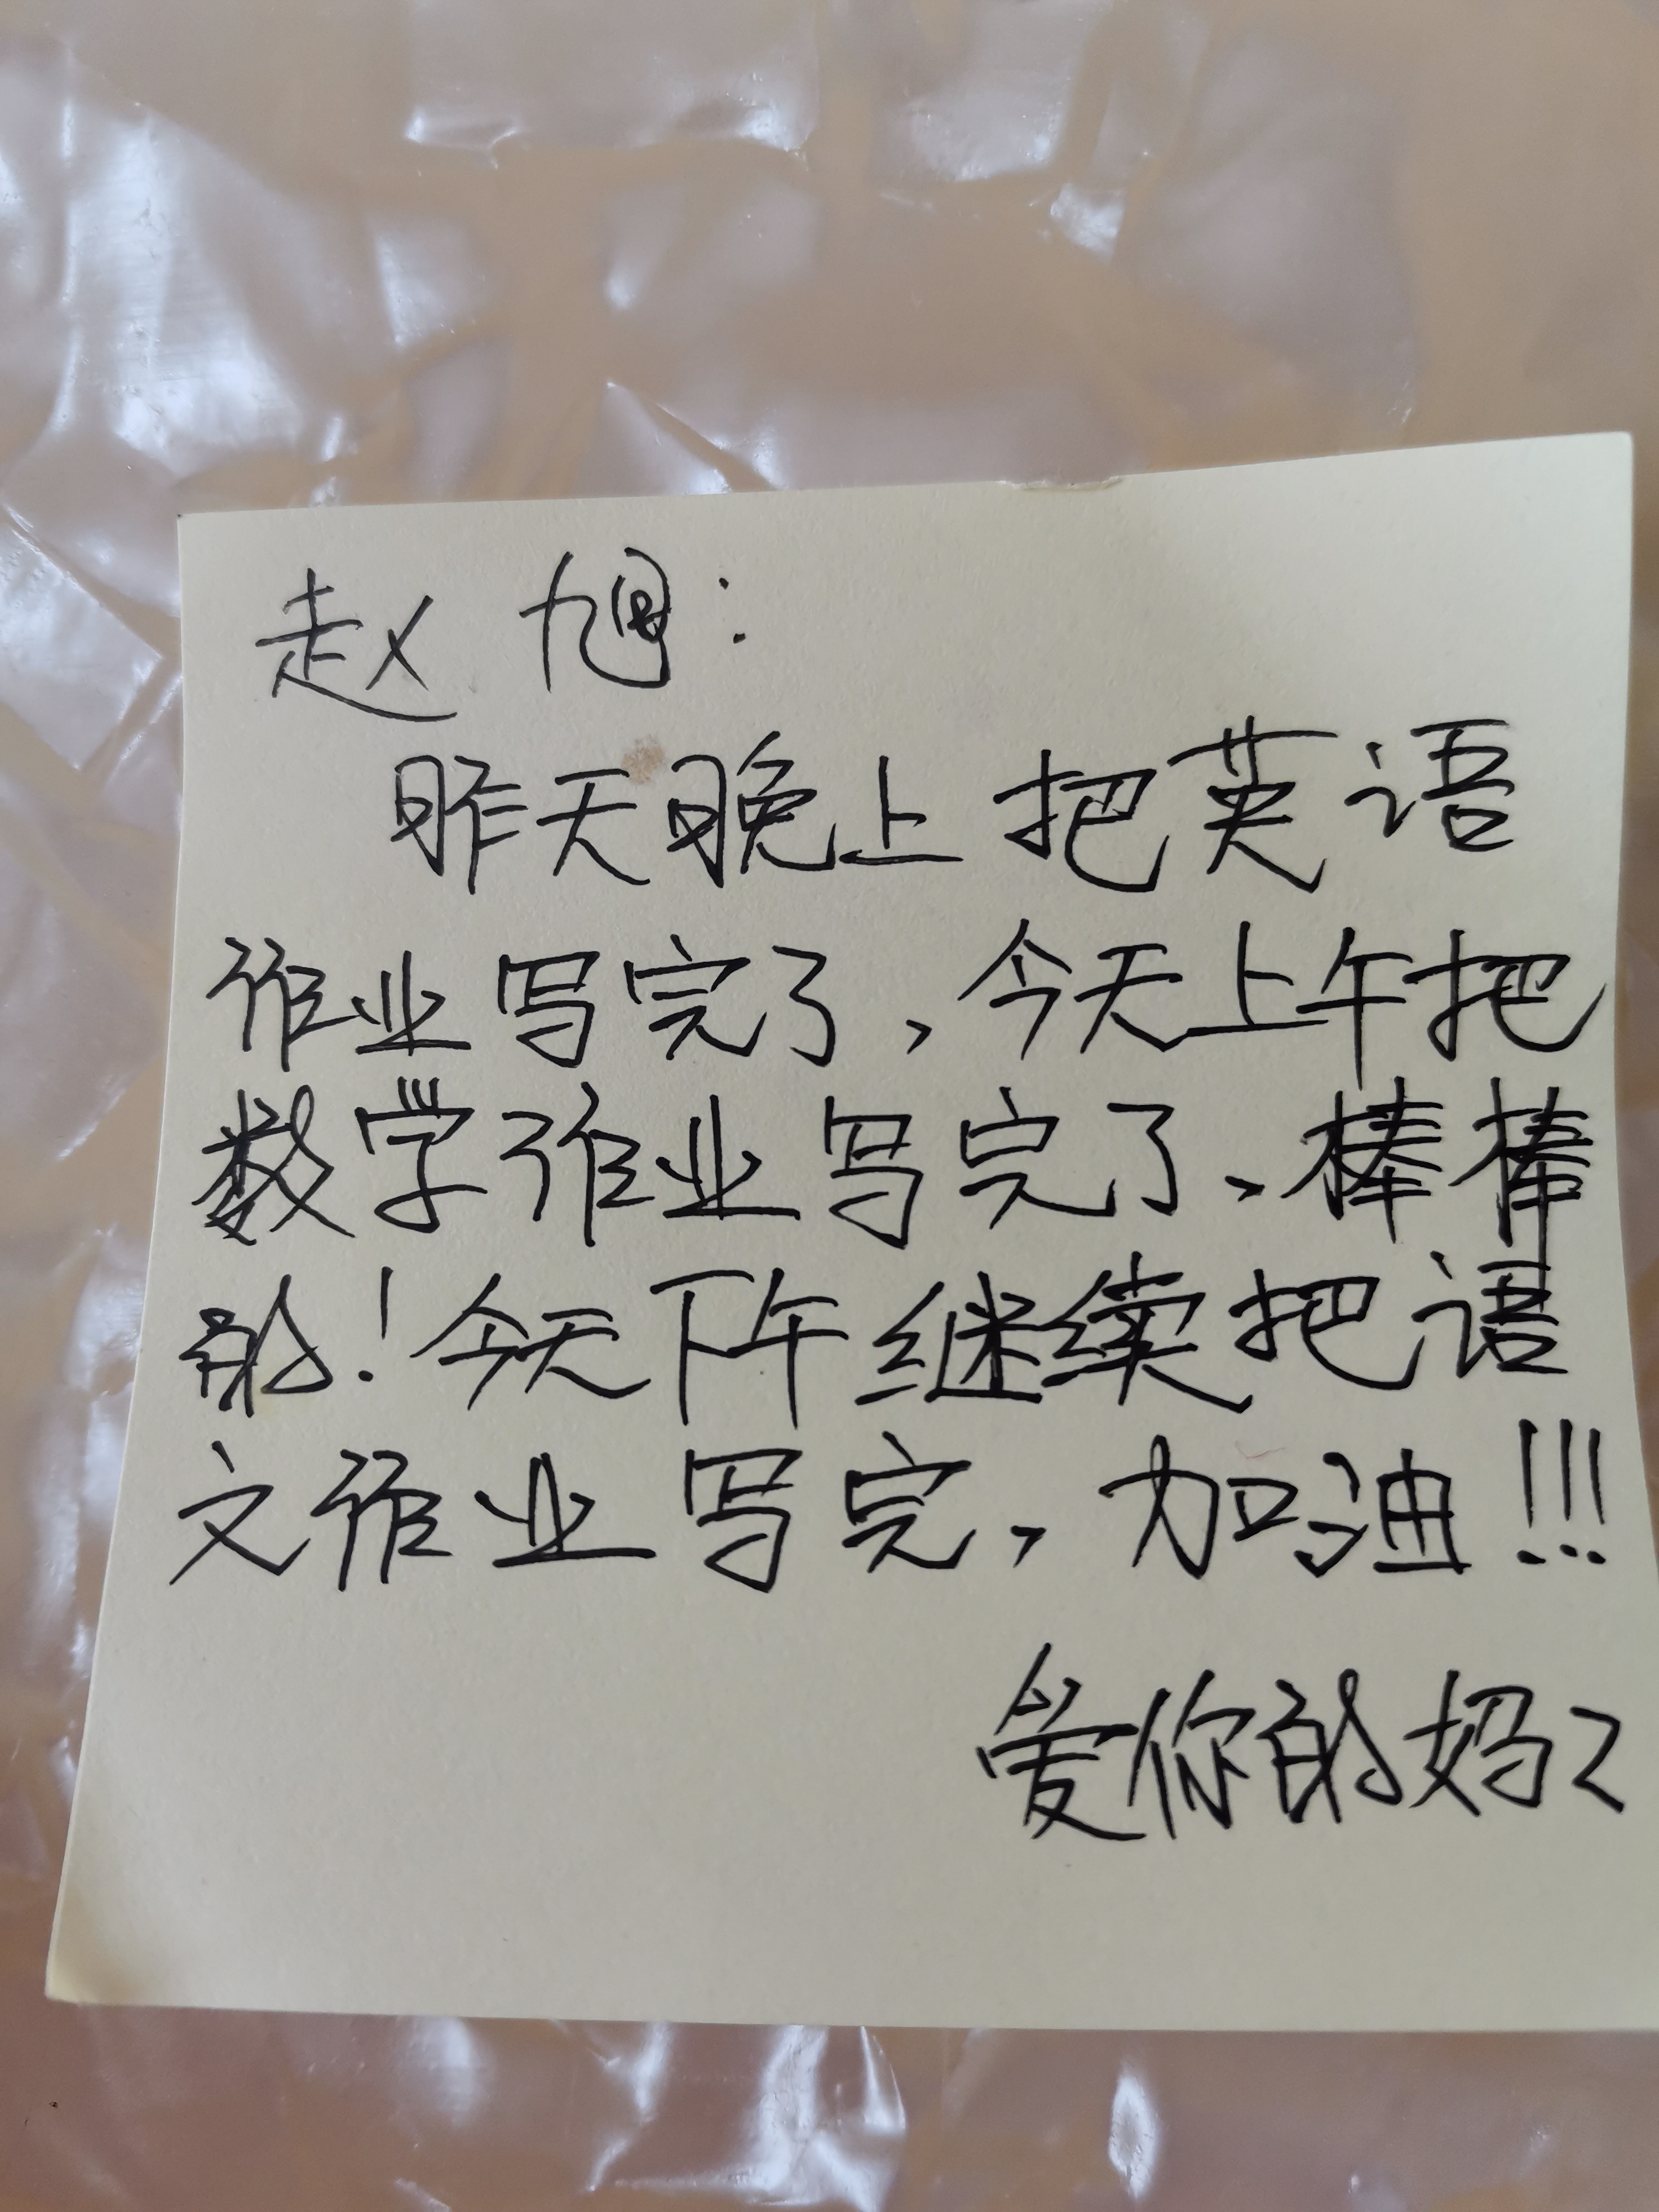 赵旭：
昨天晚上把英语
作业写完了，今天上午把
数学作业写完了、棒棒
的！今天下午继续把语
文作业写完，加油！！！
爱你的妈〻